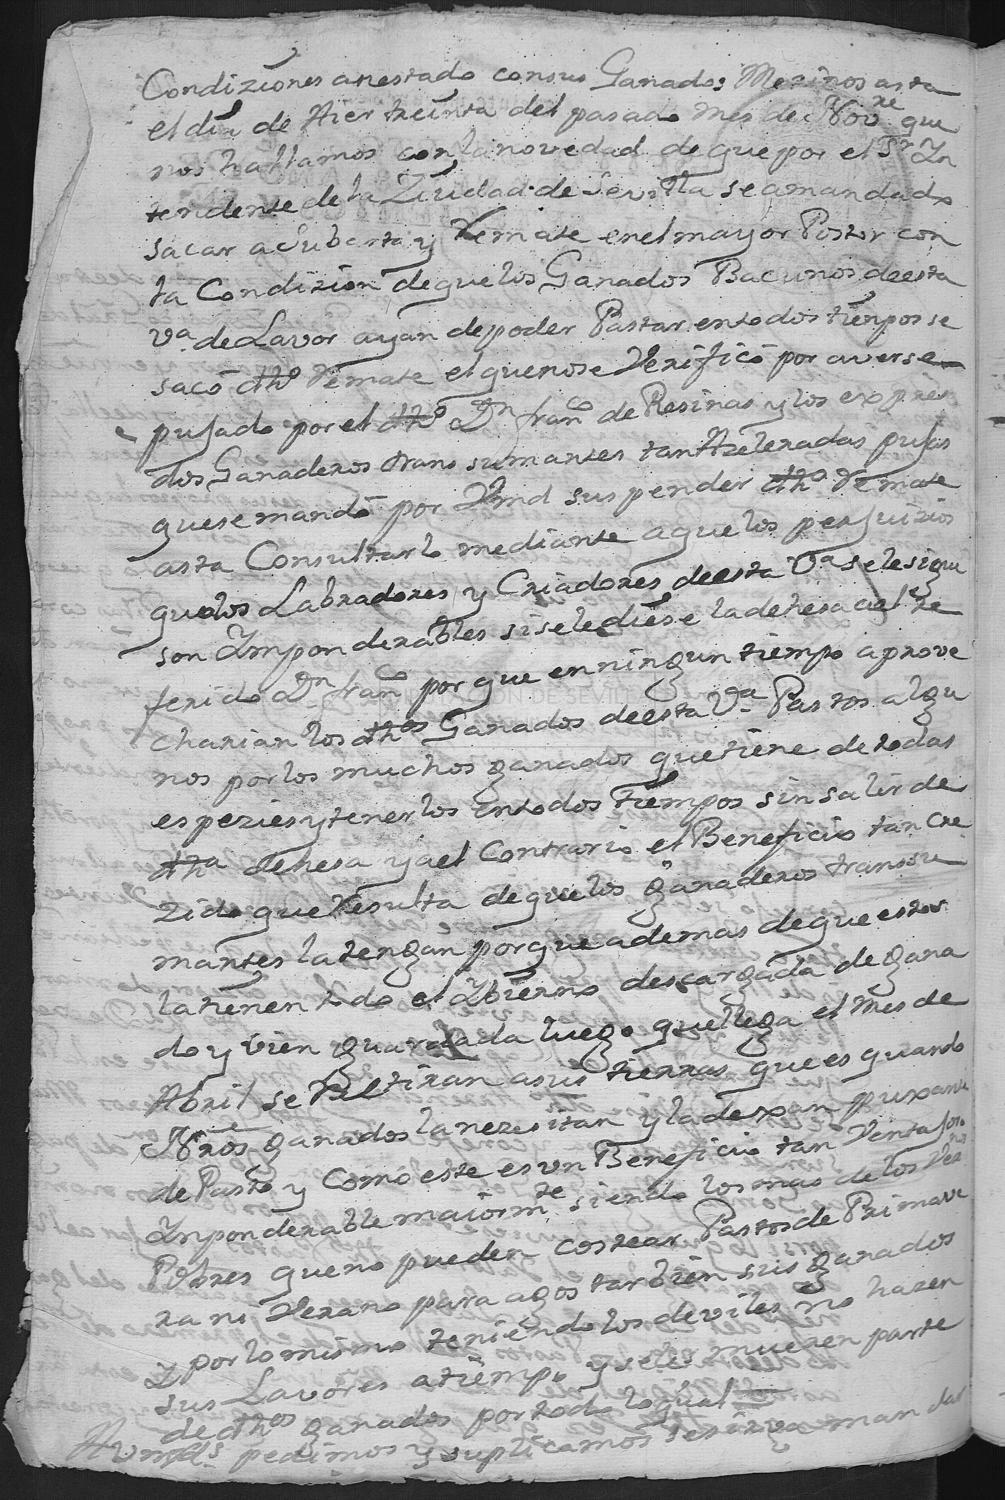 Condiziones anestado consus Ganados Merinos asta
el dia de Aier treinta del pasado mes de Nov.re que
nos hallamos con la novedad de que por el S.r Yn
tendente de la Ziudad de Sevilla se a mandado
sacar a Subasta y Remate en el mayor Postor con
la Condizion de que los Ganados Bacunos de esta
V.a de Lavor ayan de poder Pastar en todos tiempos se
saco dho Remate el que no se Verifico por averse
pujado por el dho D.n fran.co de Resinas y los expres
dos Ganaderos trans sumantes tan Azeleradas pujas
que se mandó por Vmd suspender dho Remate
asta Consultarlo mediante a que los perjuizios
que los Labradores y Criadores de esta V.a se le sigu
son Ynponderables si se le diese la dehesa al re
ferido D.n fran.co por que en ningun tiempo aprove
charian los dhos Ganados de esta V.a Pastos algu
nos por los muchos ganados que tiene de todas
espezies y tenerlos en todos Tiempos sin salir de
dha dehesa y a el Contrario el Beneficio tan Cre
zido que Resulta de que los ganaderos transu
mantes la tengan por que ademas de que estos
la tienen todo el Ybierno descargada de gana
do y bien guardada luego que llega el Mes de
Abril se Retiran a sus tierras que es quando
Nros ganados la nezesitan y la dexan puxante
de Pasto y Como este es un Beneficio tan Ventajoso
Ynponderable maiorm.te siendo los mas de los Vez.nos
Pobres que no pueden costear Pastos de Primave
ra ni Verano para agostar bien sus ganados
y por lo mismo teniendolos deviles no hazen
sus Lavores a tiempo y se les mueren parte
de dhos ganados por todo lo qual
A Vmds. pedimos y suplicamos se sirva mandar